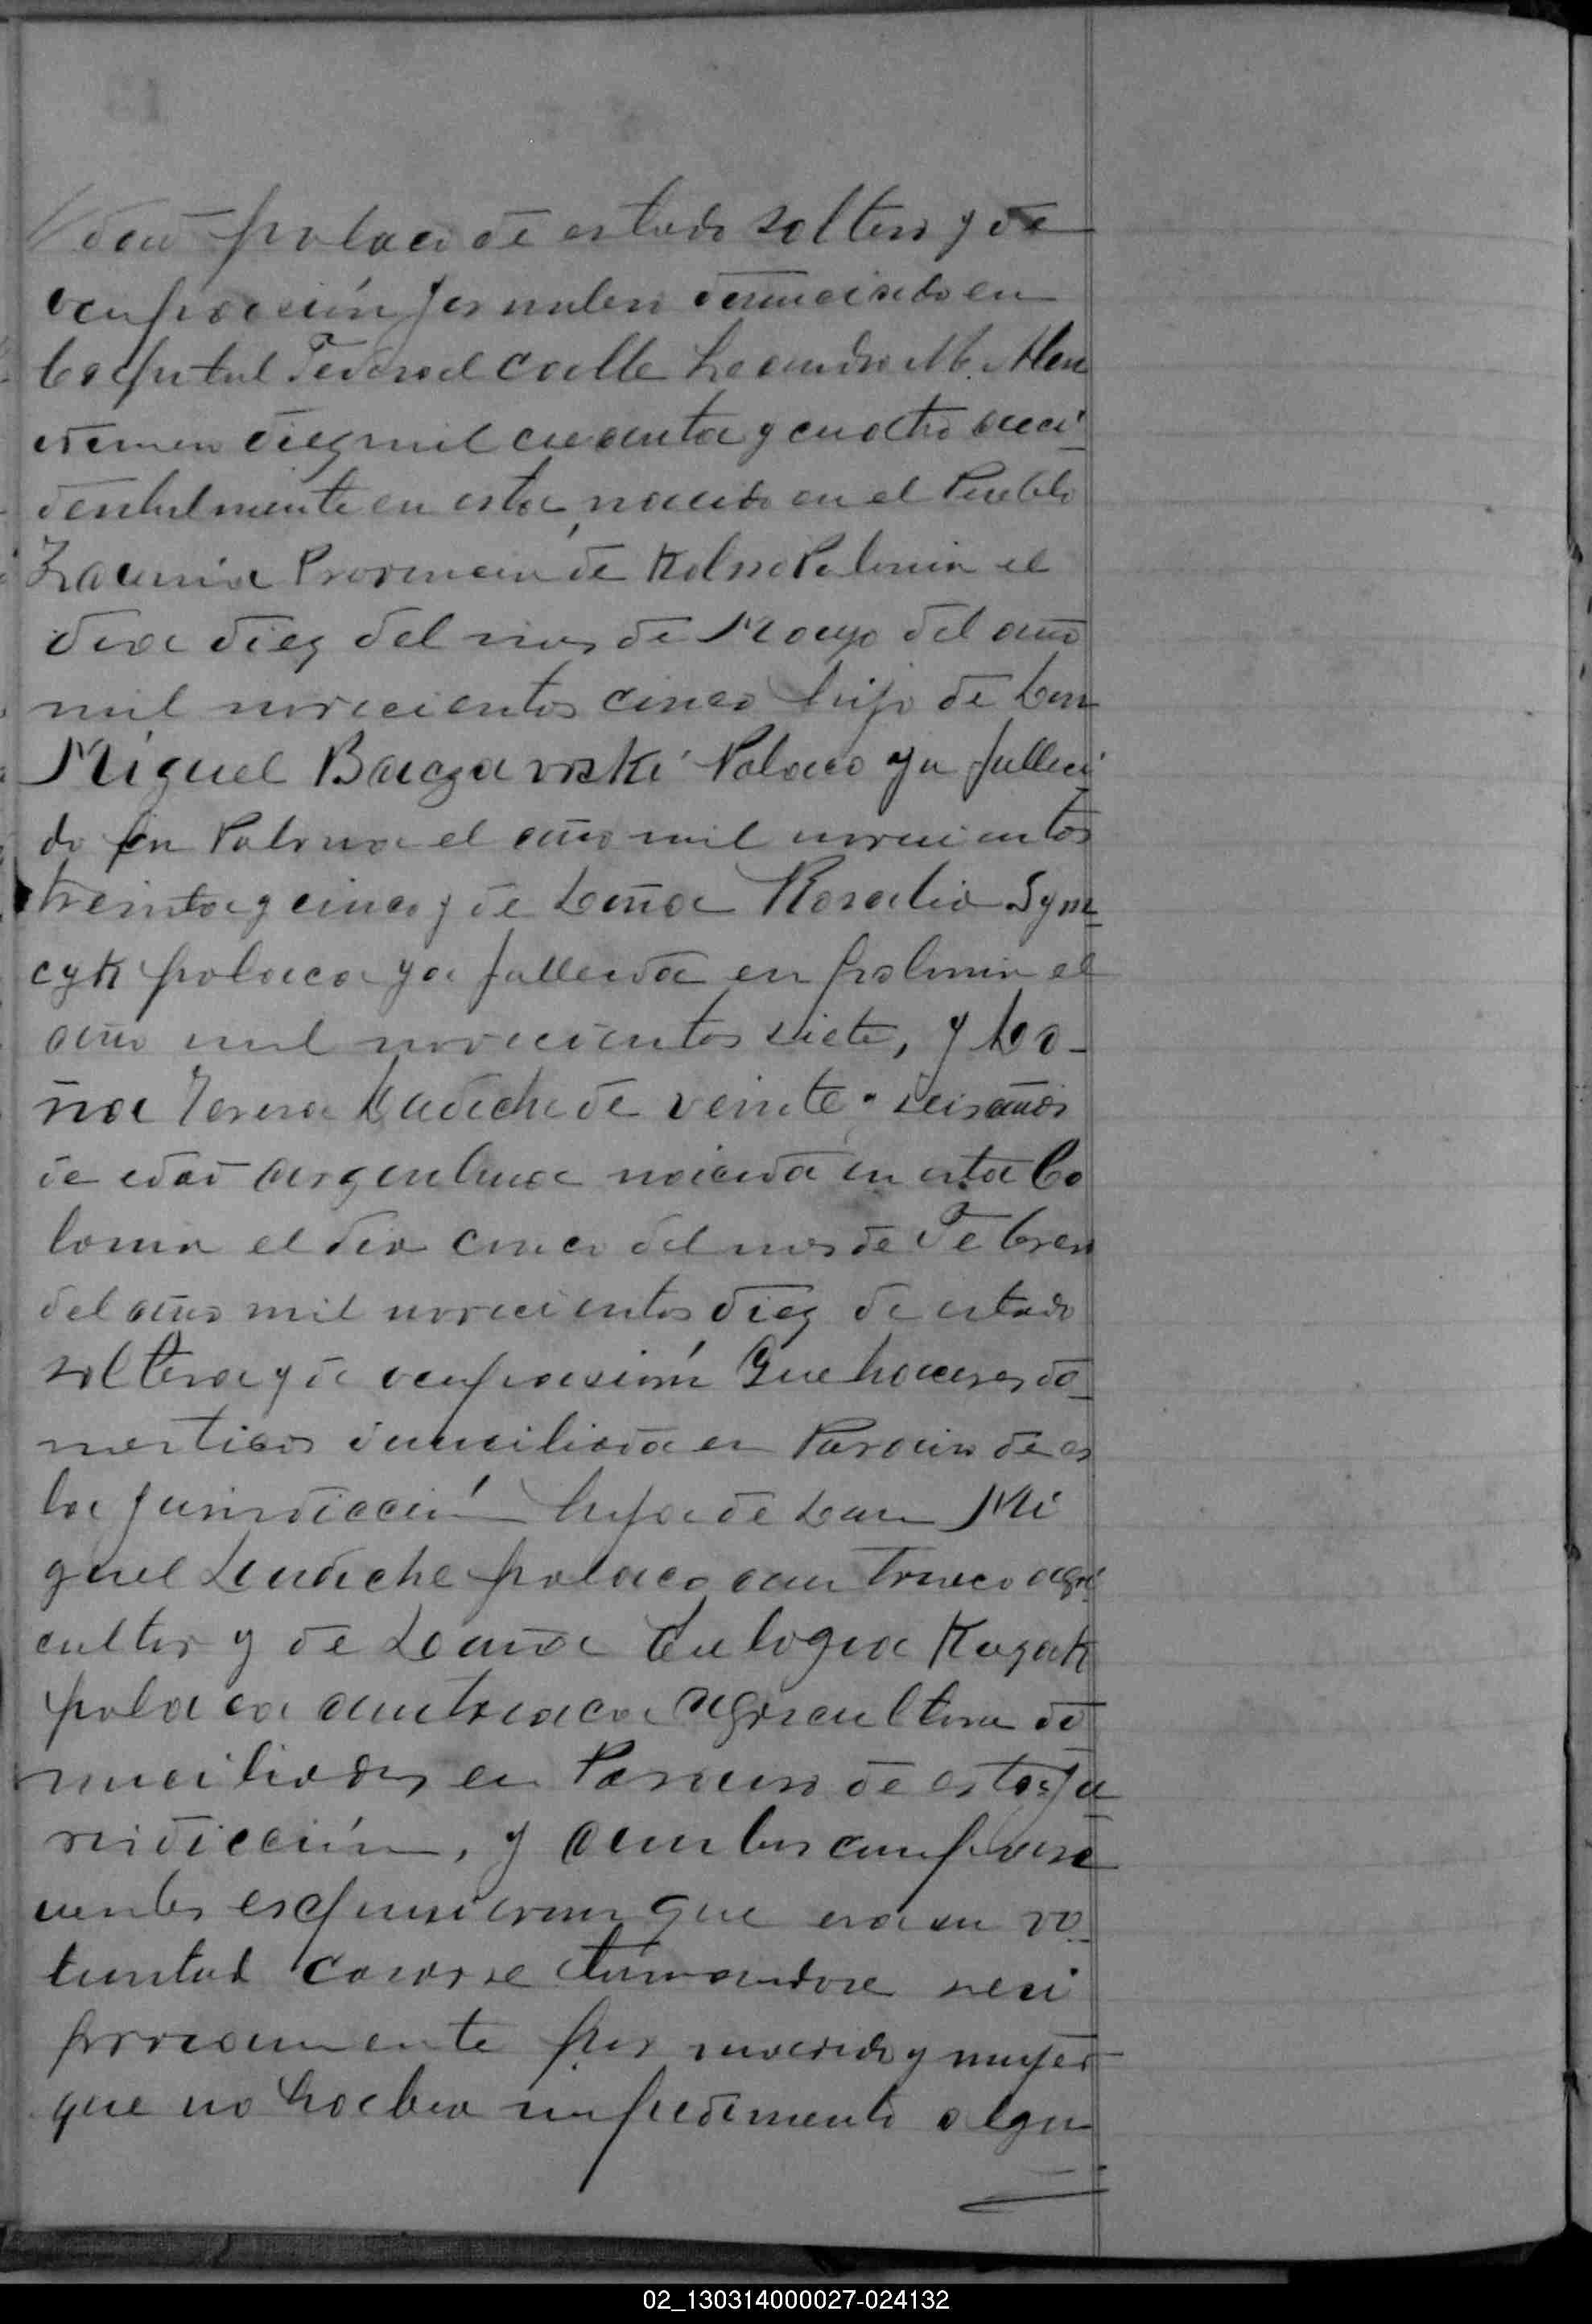 dad polaco de estado soltero y de
ocupación jornalero domiciliado en
Capital Federal Calle Leandro M. Alen
número diez mil cuarenta y cuatro acci
dentalmente en esta, nacido en el Pueblo
Provincia de Kolno Polonia el
dia diez del mes de Mayo del año
mil novecientos cinco hijo de Don
Miguel Baczavski Polaco ya falleci
do en Polonia el año mil novecientos
treinta y cinco y de Doña Rosalia Sym
cyk polaca ya fallecida en polonia el
año mil novecientos siete, y Do-
ña Teresa Laudiche de veinte y seis años
de edad argentina nacida en esta Co
lonia el dia cinco del mes de Febrero
del año mil novecientos diez de estado
soltera y de ocupasión Quehaceres do
mesticos domiciliada en de es
ta jurisdicción hija de Don Mi
guel Laudiche polaco austriaco agri
cultor y de Doña Eulogia Kuzak
polaca austriaca agricultora do
miciliados en de esta Ju
risdicción, y ambos compare
cientes expusieron que era su vo
luntad casarse tomandose reci
procamente por marido y mujer
que no habia impedimento algu
02_130314000027-024132